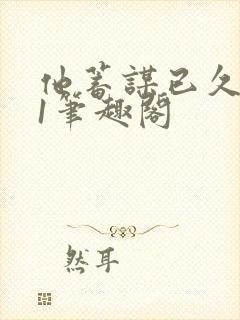 他蓄謀已久
1筆趣閣
然耳